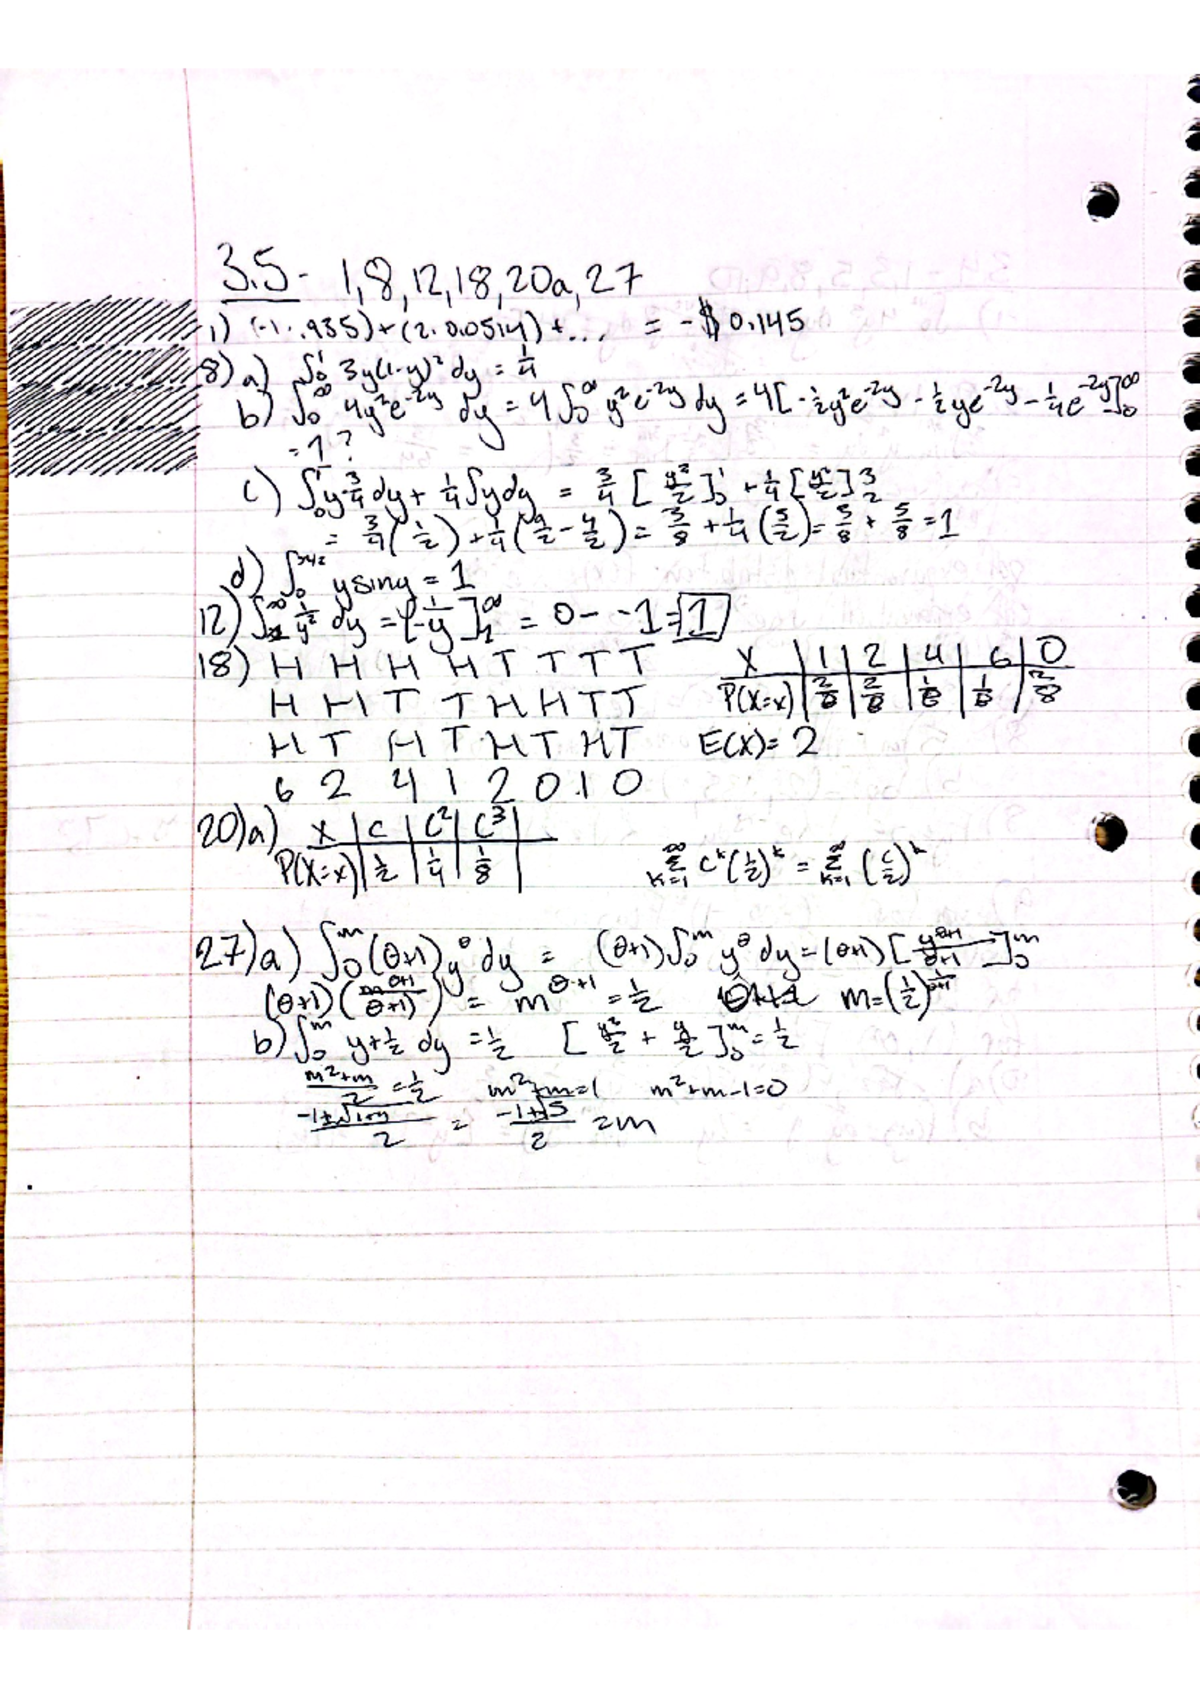 3.5 - 1,8,12,18,20a,27
1) (-1 · .935) + (2 · 0.0514) + ... = -$0.145
8) a) ∫₀¹ 3y(1-y)² dy = 1/4
b) ∫₀^∞ 4y²e^(-2y) dy = 4∫₀^∞ y²e^(-2y) dy = 4[-1/2y²e^(-2y) - 1/2ye^(-2y) - 1/4e^(-2y)]₀^∞
= 1?
c) ∫₀¹ y·3/4 dy + 1/4∫y dy = 3/4[y²/2]₀¹ + 1/4[y²/2]₂³
= 3/4(1/2) + 1/4(9/2 - 4/2) = 3/8 + 1/4(5/2) = 3/8 + 5/8 = 1
d) ∫₀ y sin y = 1
12) ∫₁^∞ 1/y² dy = [-1/y]₁^∞ = 0 - -1 = 1
18) H H H H T T T T X | 1 | 2 | 4 | 6 | 0
H H T T H H T T P(X=x) | 2/8 | 2/8 | 1/8 | 1/8 | 2/8
H T H T H T H T E(X) = 2
6 2 4 1 2 0 1 0
20) a) X | C | C² | C³ |
P(X=x) | 1/2 | 1/4 | 1/8 | Σ_(k=1)^∞ C^k(1/2)^k = Σ_(k=1)^∞ (C/2)^k
27) a) ∫₀^m (θ+1)y^θ dy = (θ+1)∫₀^m y^θ dy = (θ+1)[y^(θ+1)/θ+1]₀^m
(θ+1)(m^(θ+1)/θ+1) = m^(θ+1) = 1/2 m = (1/2)^(1/θ+1)
b) ∫₀^m y+1/2 dy = 1/2 [y²/2 + y/2]₀^m = 1/2
m²+m/2 = 1/2 m²+m=1 m²+m-1=0
-1±√1+4/2 = -1+√5/2 = m